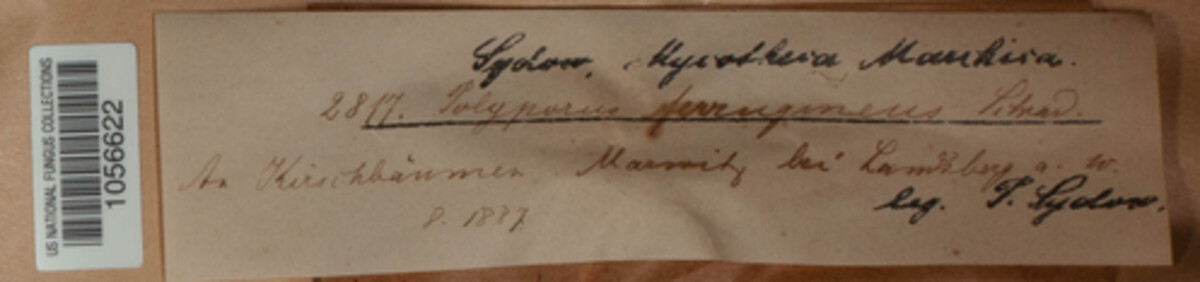 US NATIONAL FUNGUS COLLECTIONS
1056622
Sydow, Mycotheca Marchica.
2817. Polyporus ferrugineus Schrad.
An Kirschbäumen. Marwitz bei Landsberg a. W.
8. 1887
leg. P. Sydow.